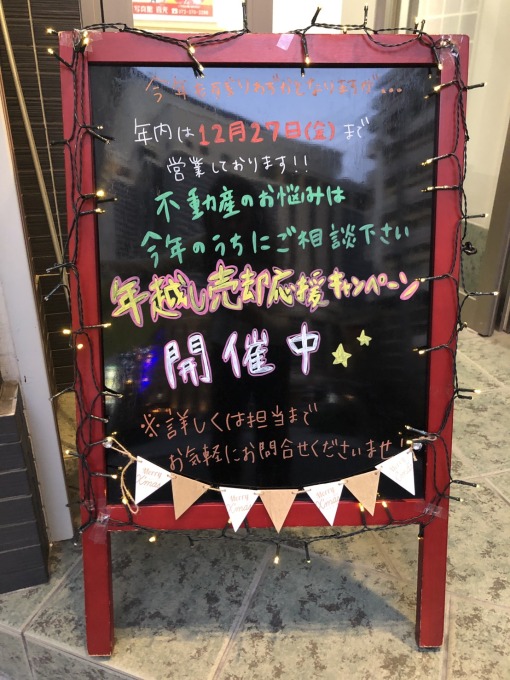 今年も残りわずかとなりますが...
年内は12月27日(金)まで
営業しております!!
不動産のお悩みは
今年のうちにご相談下さい
年越し売却応援キャンペーン
開催中
※詳しくは担当まで
お気軽にお問合せくださいませ!
Merry X'mas
Merry X'mas
Merry X'mas